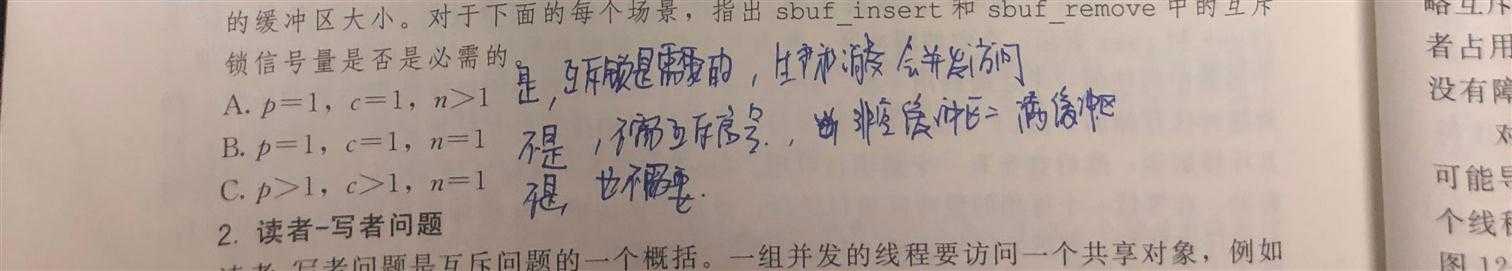 的缓冲区大小。对于下面的每个场景，指出 sbuf_insert 和 sbuf_remove 中的互斥
锁信号量是否是必需的
是，互斥锁是需要的，生产和消费会并发访问
A. p=1，c=1，n>1
B. p=1，c=1，n=1
不是，不需互斥信号，非空缓冲区=满缓冲区
C. p>1，c>1，n=1
不是，也不需要.
2. 读者-写者问题
读者-写者问题是互斥问题的一个概括。一组并发的线程要访问一个共享对象，例如
略互斥
者占用
没有障
对
可能导
个线程
图 12